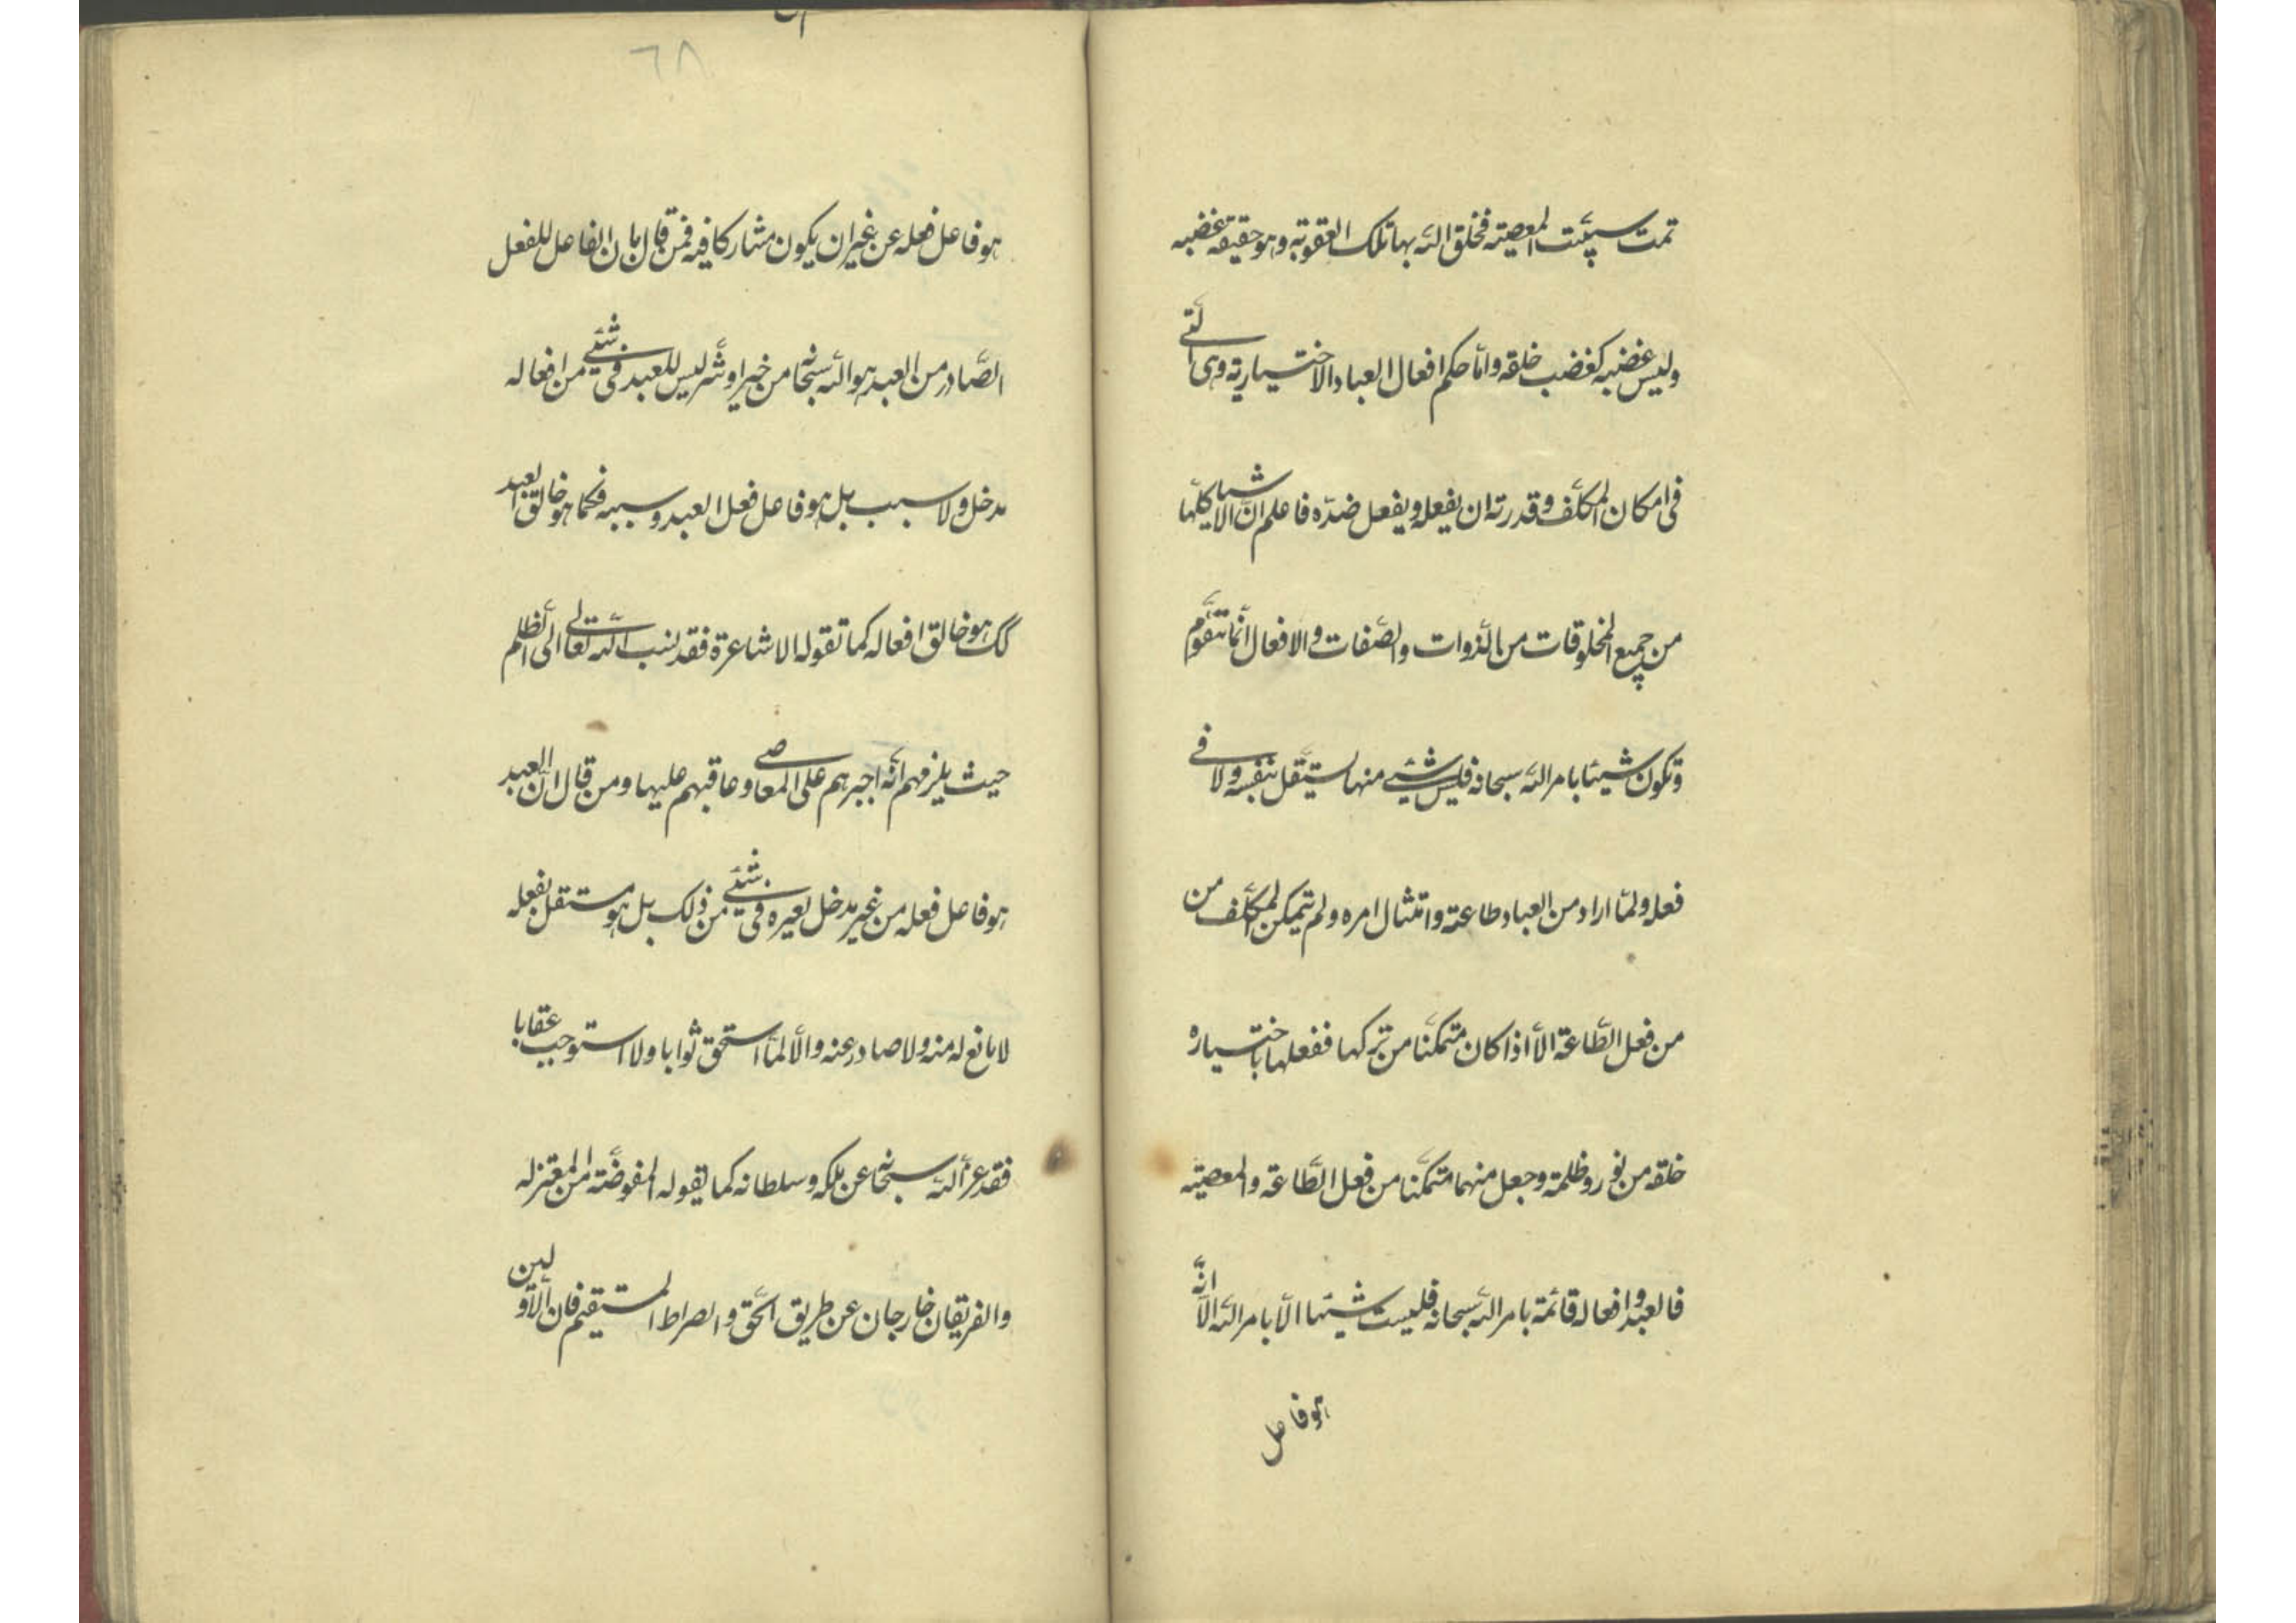 تمت سيئت المعصية فخلق الله بها تلك العقوبة وهو حقيقة غضبه
وليس غضبه كغضب خلقه وامّا حكم افعال العباد الاختيارية وهى الّتى
فى امكان المكلّف وقدرته ان يفعله ويفعل ضدّه فاعلم انّ الاشيا كلّها
من جميع المخلوقات من الذّوات والصّفات والافعال انّما تتقوّم
وتكون شيئا بامر الله سبحانه فليس شيئى منها يستقل بنفسه ولا فى
فعله ولمّا اراد من العباد طاعته وامتثال امره ولم يتمكن المكلّف من
من فعل الطّاعة الّا اذا كان متمكّنا من تركها ففعلها باختياره
خلقه من نور وظلمة وجعل منهما متمكّنا من فعل الطّاعة والمعصية
فالعبد وافعاله قائمة بامر الله سبحانه فليست شيئا الّا بامر الله الّا انّه
هو فاعل
٦٨
هو فاعل فعله عن غير ان يكون مشاركا فيه فمن قال بان الفاعل للفعل
الصّادر من العبد هو الله سبحانه من خير او شرّ ليس للعبد فى شيئى من افعاله
مدخل ولا سبب بل هو فاعل فعل العبد وسببه فكما هو خالق العبد
كك هو خالق افعاله كما تقوله الاشاعرة فقد نسب الله تعالى الى الظّلم
حيث يلزمهم انّه اجبرهم على المعاصى وعاقبهم عليها ومن قال انّ العبد
هو فاعل فعله من غير مدخل لغيره فى شيئى من ذلك بل هو مستقل بفعله
لا مانع له منه ولا صادر عنه والّا لمّا استحق ثوابا ولا استوجب عقابا
فقد عزل الله سبحانه عن ملكه وسلطانه كما يقوله المفوّضة من المعتزله
والفريقان خارجان عن طريق الحّق والصراط المستقيم فان الاوّلين